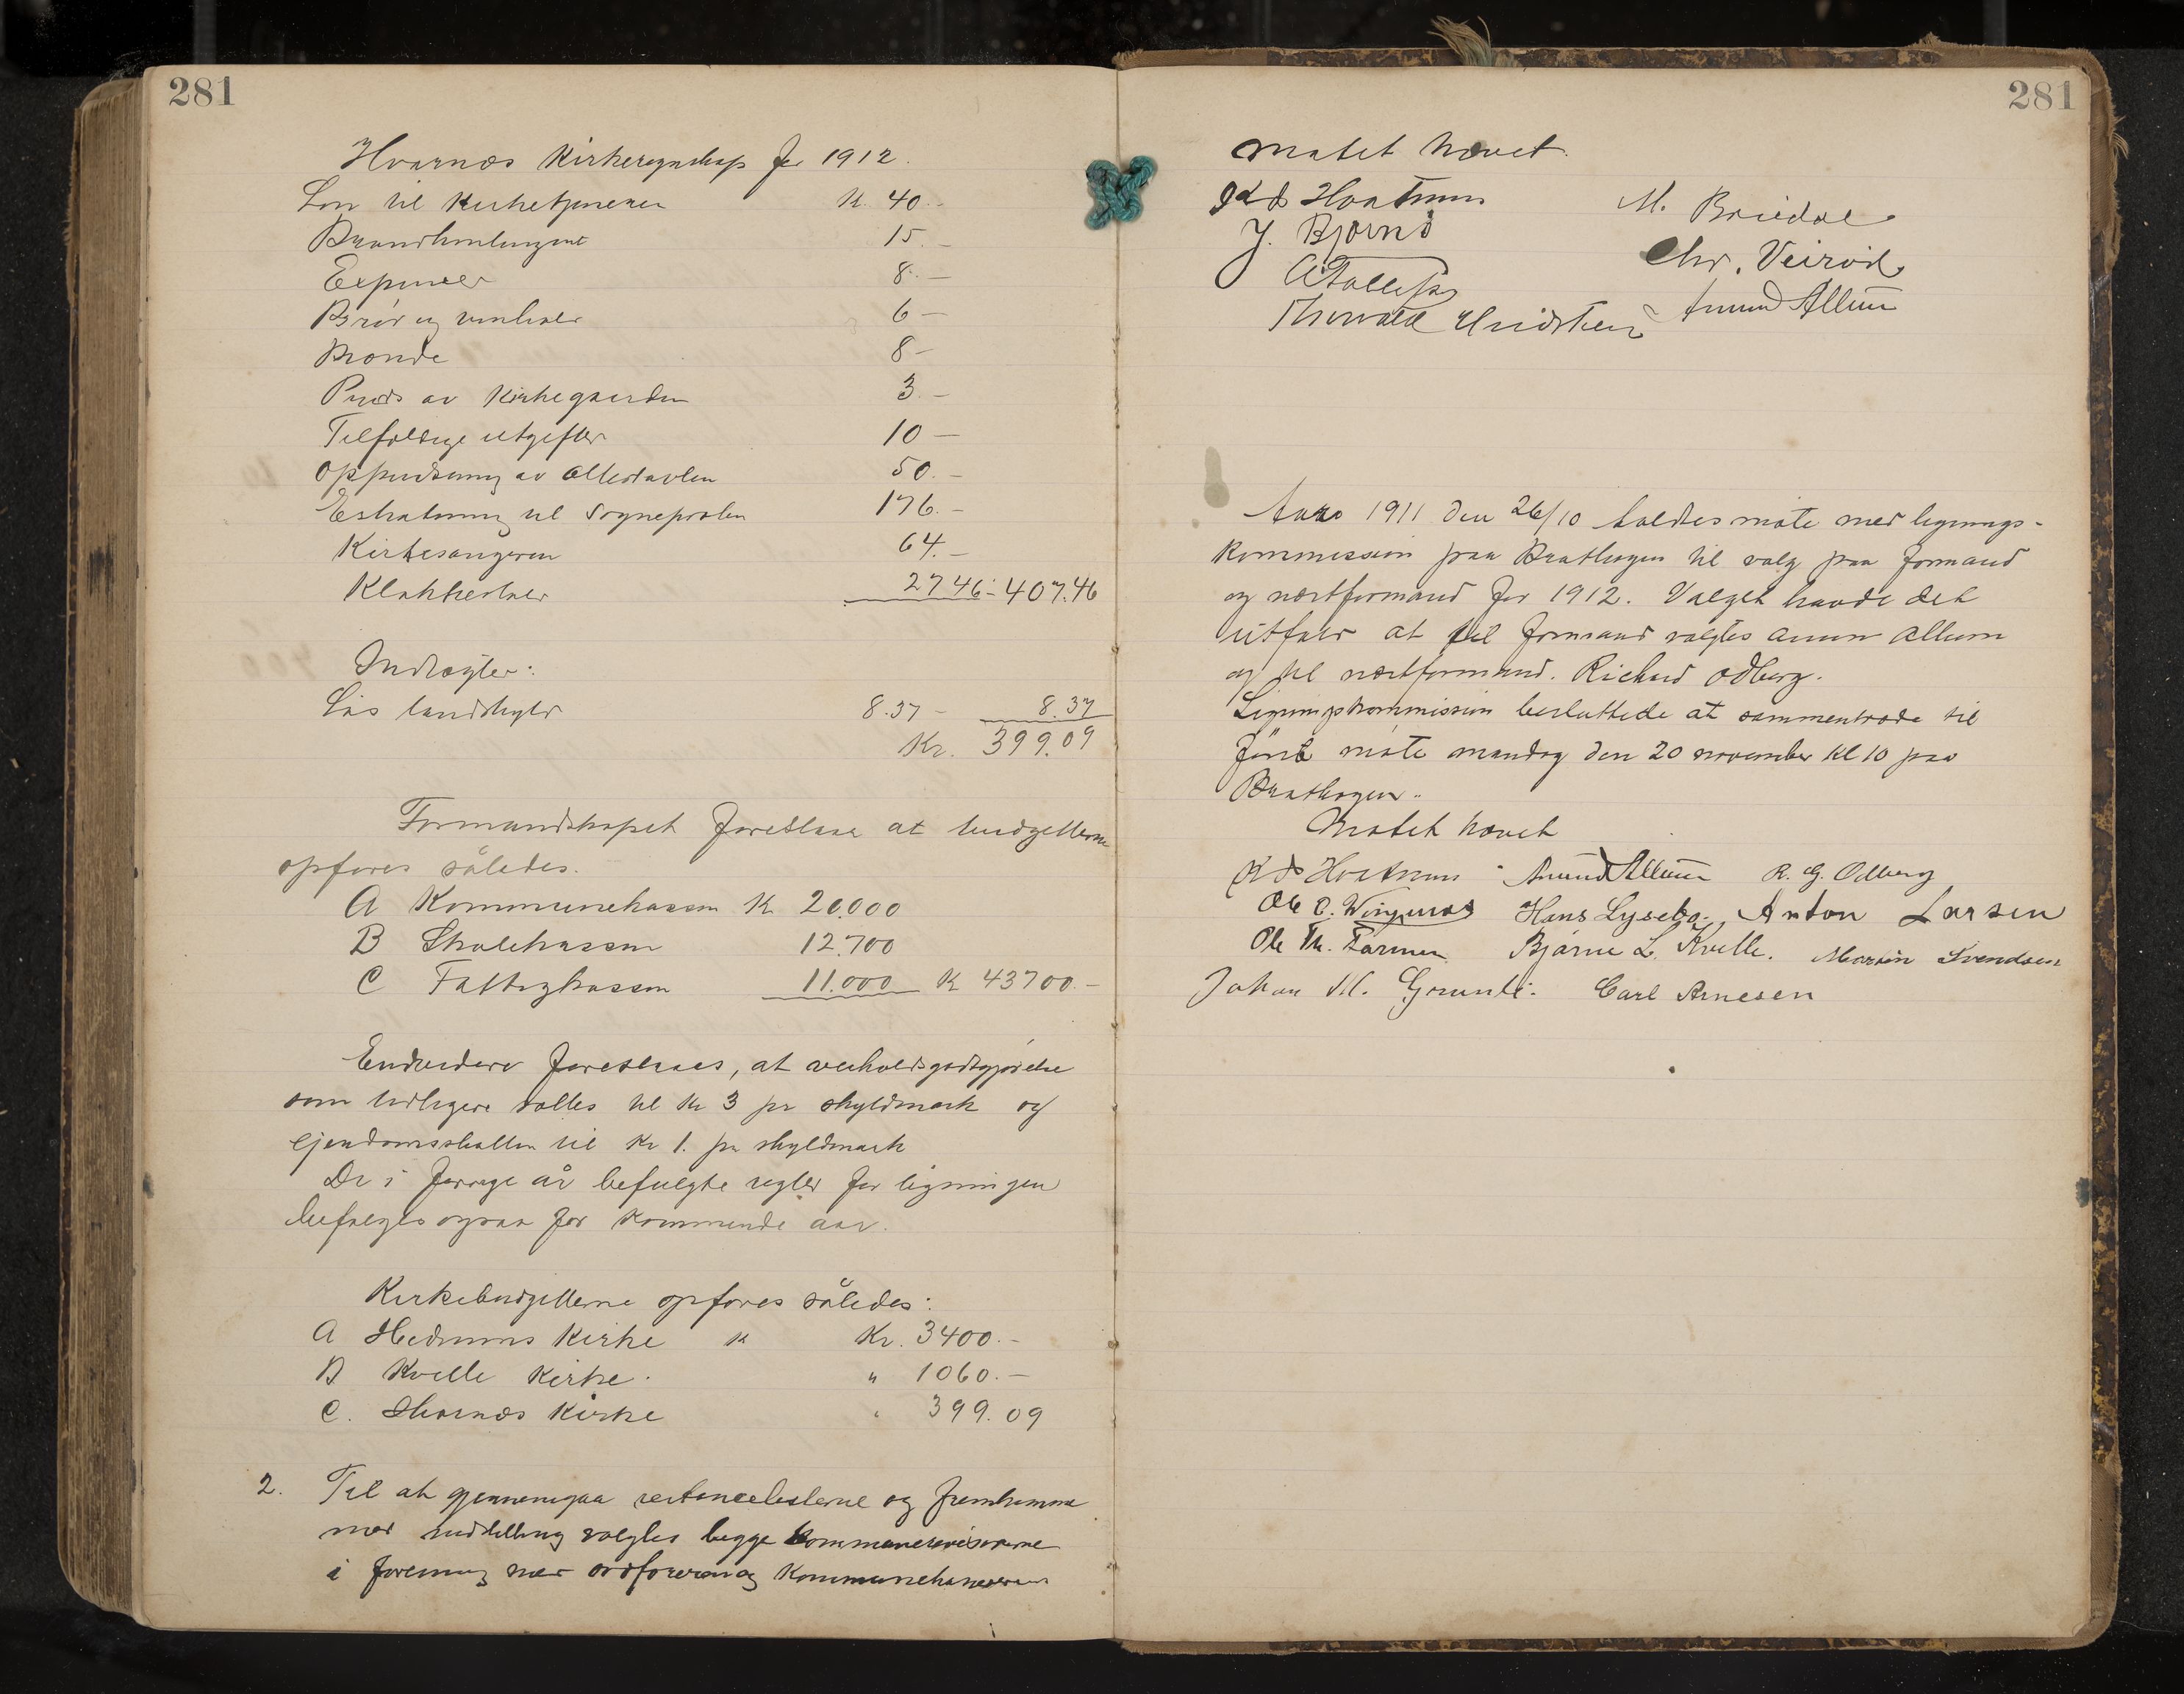 281
Hvarnæs Kirkeregnskap for 1912.
Løn til Kirketjeneren K. 40.-
Brandkontingent 15.-
Expenser 8.-
Brød og vin 6-
Brænde 8-
Puds av Kirkegaarden 3.-
Tilfældige utgifter 10-
Oppudsning av Altertavlen 50.-
Erstatning til Sognepresten 176.-
Kirkesangeren 64.-
Klokkeren 27 46 - 407.46
Indtægter:
Løs landskyld 8.37 - 8.37
Kr. 399.09
Formandskapet foreslaar at budgetterne
opføres således.
A Kommunekassen K 20,000
B Skolekassen 12.700
C Fattigkassen 11.000 K 43700.-
Endvidere foreslaaes, at veiholdsgodtgjørelse
som tidligere sættes til Kr 3 pr skyldmark og
ejendomsskatten til Kr 1. pr skyldmark
De i forrige år befulgte regler for ligningen
befølges ogsaa for Kommende aar.
Kirkebudgetterne opføres således:
A Hedrums Kirke K Kr. 3400.-
B Kvelle Kirke. " 1060.-
C. Hvarnæs Kirke " 399.09
2. Til at gjennemgaa restancelisterne og fremkomme
med indstilling valgtes begge Kommunerevisorerne
i forening med ordføreren og Kommunekassereren
281
Møtet hævet.
M. Bredal
J. Bjørnø
Chr. Veirød
Amund Allum
Aar 1911 den 26/10 holdtes møte med lignings-
Kommissionen paa Brathagen til valg paa formand
og næstformand for 1912. Valget havde det
utfald at til formand valgtes Amun Allum
og til næstformand. Richard Odberg.
Ligningskommission besluttede at sammentræde til
først møte mandag den 20 november Kl 10 paa
Brathagen.
Møtet hævet
Amund Allum R. G. Odberg
Ole O. Hans Lysebo. Anton Larsen
Ole Th. Farmen Bjarne L. Kvelle. Martin Svendsen
Johan M. Carl Arnesen